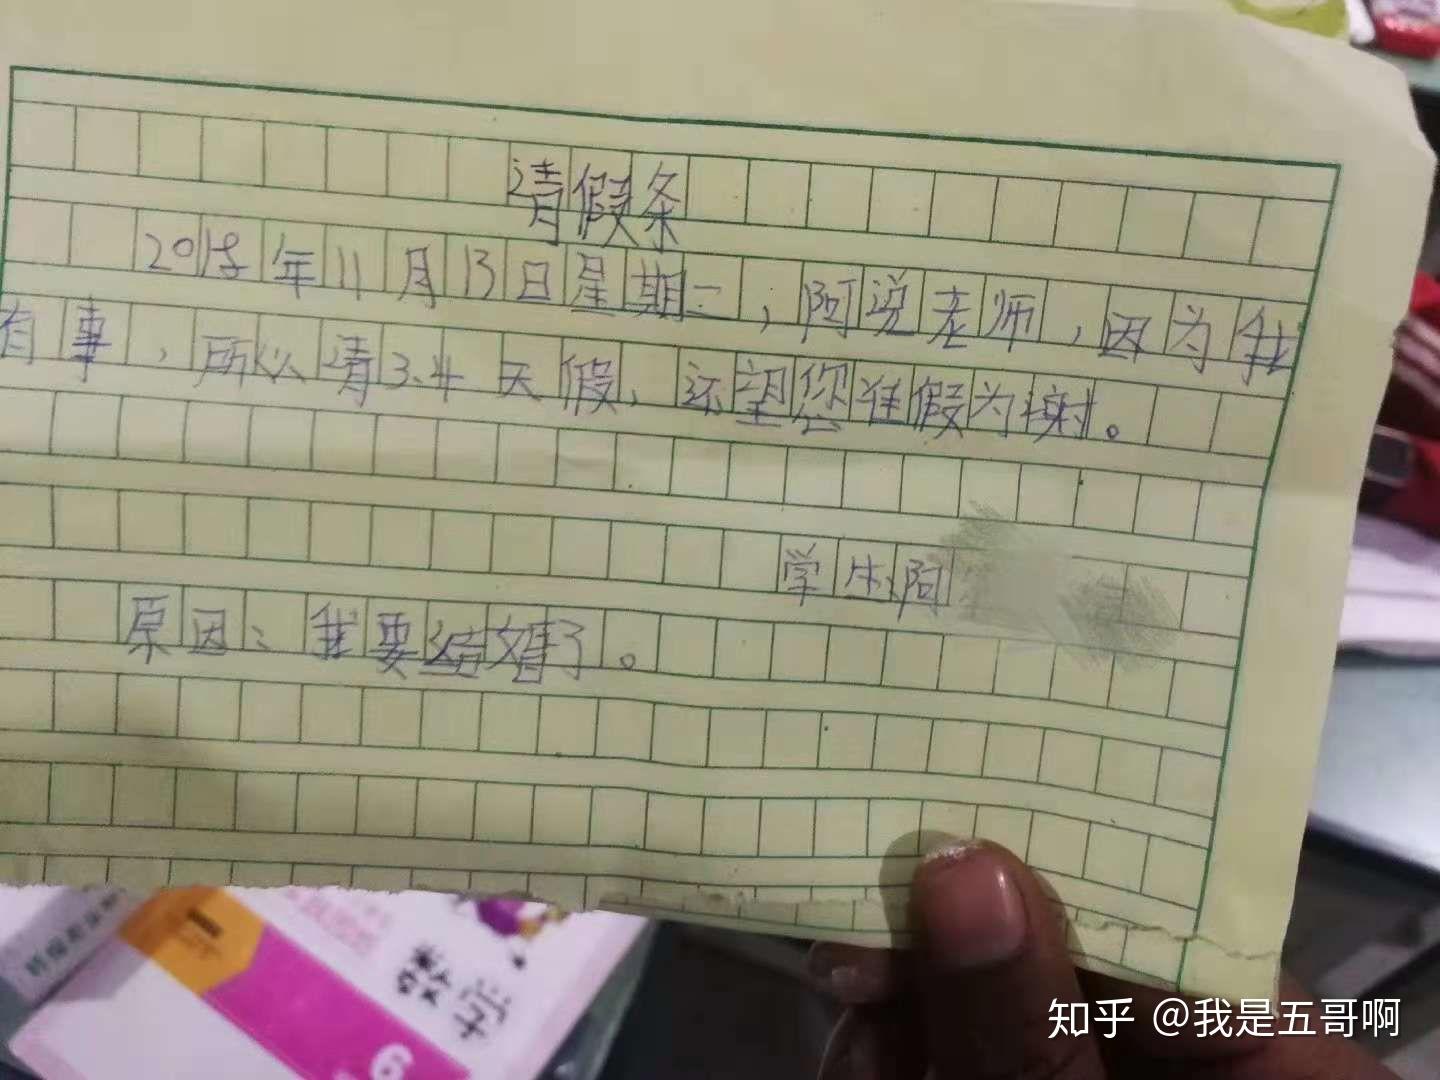 请假条
2018年11月13日星期二，阿说老师，因为我
有事，所以请3.4天假，还望您准假为谢。
学生：阿
原因：我要结婚了。
6
知乎 @我是五哥啊